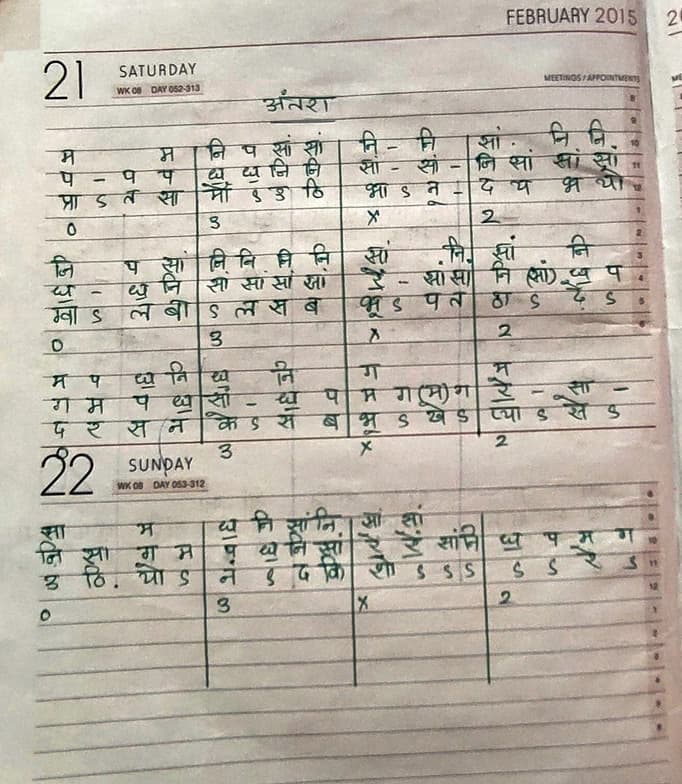 FEBRUARY 2015
21 SATURDAY
WK 08 DAY 052-313
MEETINGS / APPOINTMENTS
अंतरा
म म | नि प सां सां | नि - नि | सां. नि नि
प - प प | ध॒ ध॒ नि नि | सां - सां - | नि सां सां सां
प्रा ऽ त सा | मी ऽ उ ठि | भा ऽ नू - | द य भ यो
0 3 x 2
नि प सां | नि नि नि नि | सां नि | सां नि
ध॒ - ध॒ नि | सां सां सां सां | रें - सां सां | नि (सां) ध॒ प
ग्वा ऽ ल बा | ऽ ल स ब | भू ऽ प त | ठा ऽ ढ़े ऽ
0 3 x 2
म प ध॒ नि | ध॒ नि | ग | म
ग म प ध॒ | सां - ध॒ प | म ग (म) ग | रे - सा -
द र स न | के ऽ स ब | भू ऽ खे ऽ | प्या ऽ से ऽ
0 3 x 2
22 SUNDAY
WK 08 DAY 053-312
सा म | ध॒ नि सां नि | सां सां
नि सा ग म | प ध॒ नि सां | रें रें सां नि | ध॒ प म ग
उ ठि. यो ऽ | नं ऽ द कि | शो ऽ ऽ ऽ | ऽ ऽ रे ऽ
0 3 x 2